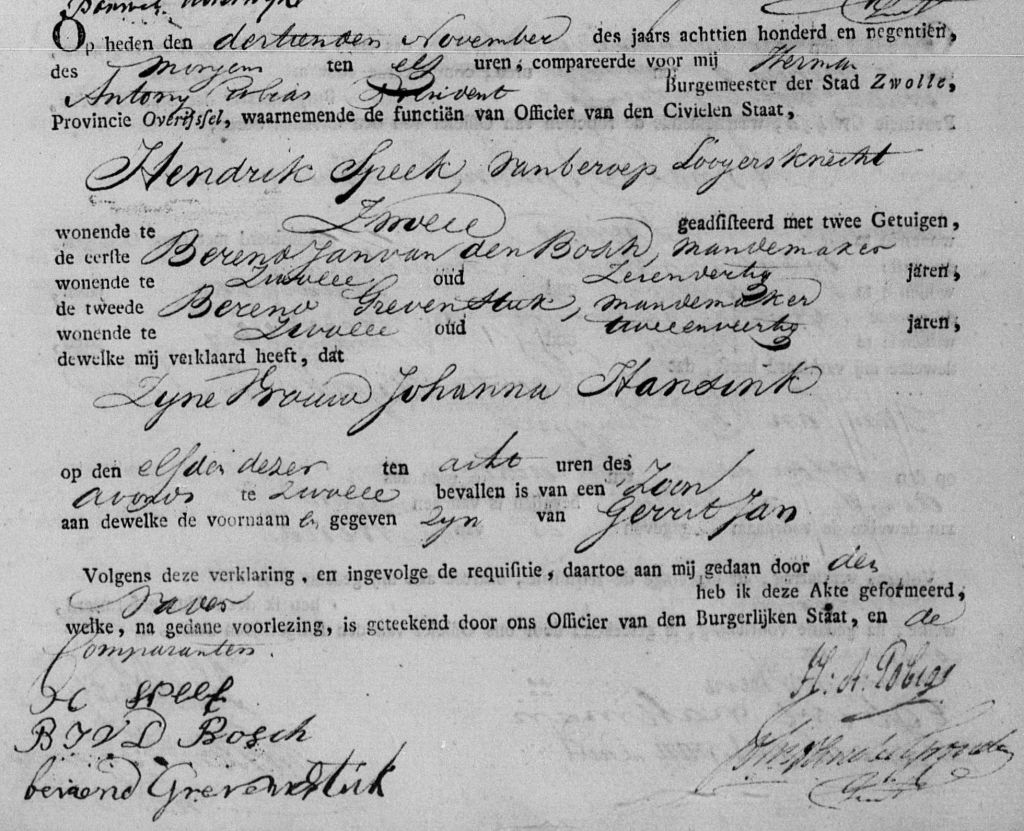 Op heden den dertienden November des jaars achttien honderd en negentien,
des Morgens ten elf uren, compareerde voor mij Herman
Antony Tobias President Burgemeester der Stad Zwolle,
Provincie Overijssel, waarnemende de functiën van Officier van den Civielen Staat,
Hendrik Speek, van beroep Looyersknecht
wonende te Zwolle geadsisteerd met twee Getuigen,
de eerste Berend Jan van den Bosch, mandemaker
wonende te Zwolle oud jaren,
de tweede Berend Grevenstuk, mandemaker
wonende te Zwolle oud tweeenveertig jaren,
dewelke mij verklaard heeft, dat
Zyne Vrouw Johanna Hansink
op den elfden dezer ten acht uren des
avonds te Zwolle bevallen is van een Zoon
aan dewelke de voornaam is gegeven Zyn van Gerrit Jan
Volgens deze verklaring, en ingevolge de requisitie, daartoe aan mij gedaan door den
Vader heb ik deze Akte geformeerd,
welke, na gedane voorlezing, is geteekend door ons Officier van den Burgerlijken Staat, en de
Comparanten.
H. A. Tobias
H Speek
B J V D Bosch
berend Grevenstuk